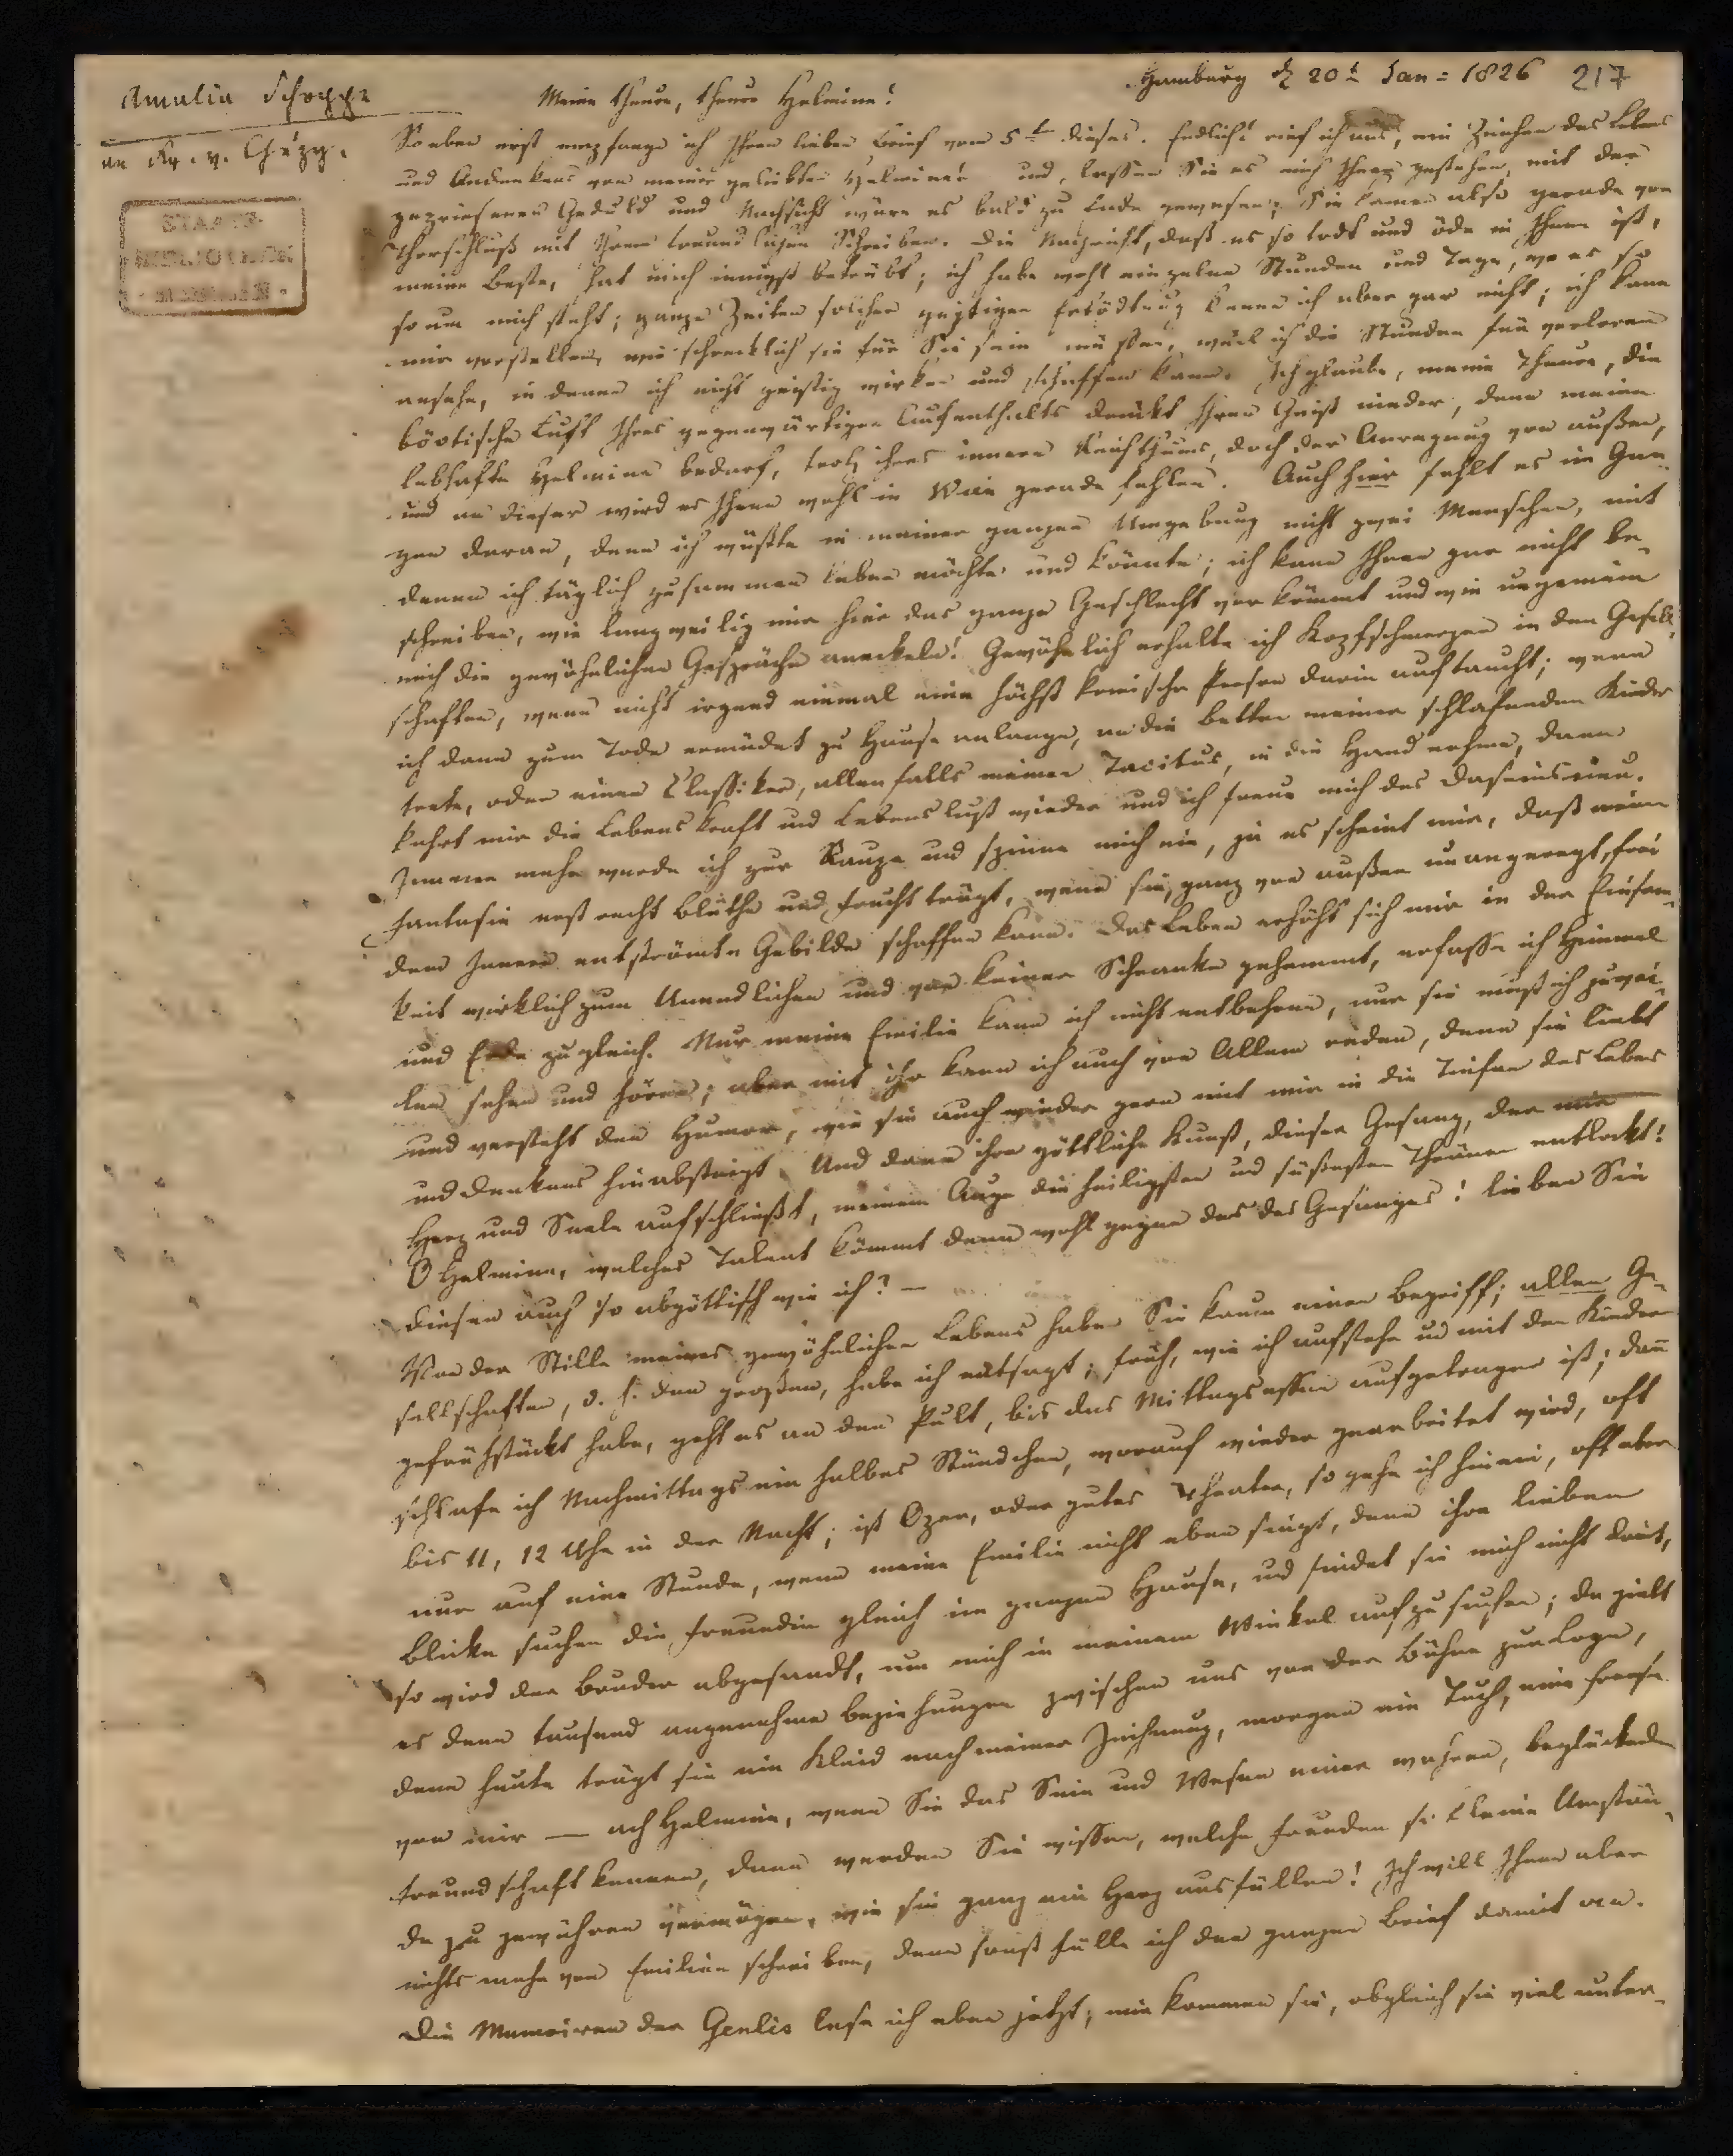 Amalia Schoppe
an Fr. v. Chézy.
Hamburg d 20t Jan = 1826
217
Meine theure, theure Helmine!
So eben erst empfange ich Ihren lieben Brief vom 5ten dieses. Endlich! rief ich aus, ein Zeichen des Lebens
und Andenkens von meiner geliebten Helmine! und, lassen Sie es mich Ihnen gestehen, mit der
gepriesenen Geduld und Nachsicht wäre es bald zu Ende gewesen; Sie kamen also gerade vor
Thorschluß mit Ihrem freundlichen Schreiben. Die Nachricht, daß es so todt und öde in Ihnen ist,
meine Beste, hat mich innigst betrübt; ich habe wohl einzelne Stunden und Tage, wo es so
so um mich steht; ganze Zeiten solcher geistigen Ertödtung kenne ich aber gar nicht; ich kann
mir vorstellen, wie schrecklich sie für Sie sein müssen, weil ich die Stunden für verloren
ansehe, in denen ich nicht geistig wirken und schaffen kann. Ich glaube, meine Theure, die
böotische Luft Ihres gegenwärtigen Aufenthalts drückt Ihren Geist nieder, denn meine
lebhafte Helmine bedarf, trotz ihres innern Reichthums, doch der Anregung von außen,
und an dieser wird es Ihnen wohl in Wien gerade fehlen. Auch hier fehlt es im Gan-
zen daran, denn ich wüßte in meiner ganzen Umgebung nicht zwei Menschen, mit
denen ich täglich zusammen leben möchte und könnte; ich kann Ihnen gar nicht be-
schreiben, wie langweilig mir hier das ganze Geschlecht vorkömmt und wie ungemein
mich die gewöhnlichen Gespräche anekeln! Gewöhnlich erhalte ich Kopfschmerzen in den Gesell-
schaften, wenn nicht irgend einmal eine höchst komische Person darin auftaucht; wenn
ich dann zum Tode ermüdet zu Hause anlange, an die Betten meiner schlafenden Kinder
trete, oder einen Classiker, allenfalls meinen Tacitus, in die Hand nehme, dann
kehrt mir die Lebenskraft und Lebenslust wieder und ich freue mich des Daseins neu.
Immer mehr werde ich zur Raupe und spinne mich ein, ja es scheint mir, daß meine
Fantasie erst recht Blüthe und Frucht trägt, wenn sie, ganz von außen unangeregt, frei
dem Innern entströmte Gebilde schaffen kann. Das Leben erhöht sich mir in der Einsam-
keit wirklich zum Unendlichen und von keiner Schranke gehemmt, erfasse ich Himmel
und Erde zugleich. Nur meine Emilie kann ich nicht entbehren, nur sie muß ich zuwei-
len sehen und hören; aber mit ihr kann ich auch von Allem reden, denn sie liebt
und versteht den Humor, wie sie auch wieder gern mit mir in die Tiefen des Lebens
und Denkens hinabsteigt. Und dann ihre göttliche Kunst, dieser Gesang, der mir
Herz und Seele aufschließt, meinem Auge die heiligsten und süßesten Thränen entlockt!
O Helmine, welches Talent kömmt denn wohl gegen das des Gesanges! lieben Sie
diesen auch so abgöttisch wie ich? —
Von der Stille meines gewöhnlichen Lebens haben Sie kaum einen Begriff; allen Ge-
sellschaften, d. h. den großen, habe ich entsagt; früh, wie ich aufstehe und mit den Kindern
gefrühstückt habe, geht es an den Pult, bis das Mittagsessen aufgetragen ist; dann
schlafe ich Nachmittags ein halbes Stündchen, worauf wieder gearbeitet wird, oft
bis 11, 12 Uhr in der Nacht; ist Oper, oder gutes Theater, so gehe ich hinein, oft aber
nur auf eine Stunde, wenn meine Emilie nicht eben singt, denn ihre lieben
Blicke suchen die Freundin gleich im ganzen Hause, und findet sie mich nicht darin,
so wird der Bruder abgesandt, um mich in meinem Winkel aufzusuchen; da giebt
es denn tausend angenehme Beziehungen zwischen uns von der Bühne zur Loge,
denn heute trägt sie ein Kleid nach meiner Zeichnung, morgen ein Tuch, eine
von mir — ach Helmine, wenn Sie das Sein und Wesen einer wahren, beglückenden
Freundschaft kennen, dann werden Sie wissen, welche Freuden so kleine Umstän-
de zu gewähren vermögen, wie sie ganz ein Herz ausfüllen! Ich will Ihnen aber
nichts mehr von Emilien schreiben, denn sonst fülle ich den ganzen Brief damit an.
Die Memoiren der Genlis lese ich eben jetzt; mir kommen sie, obgleich sie viel unter-